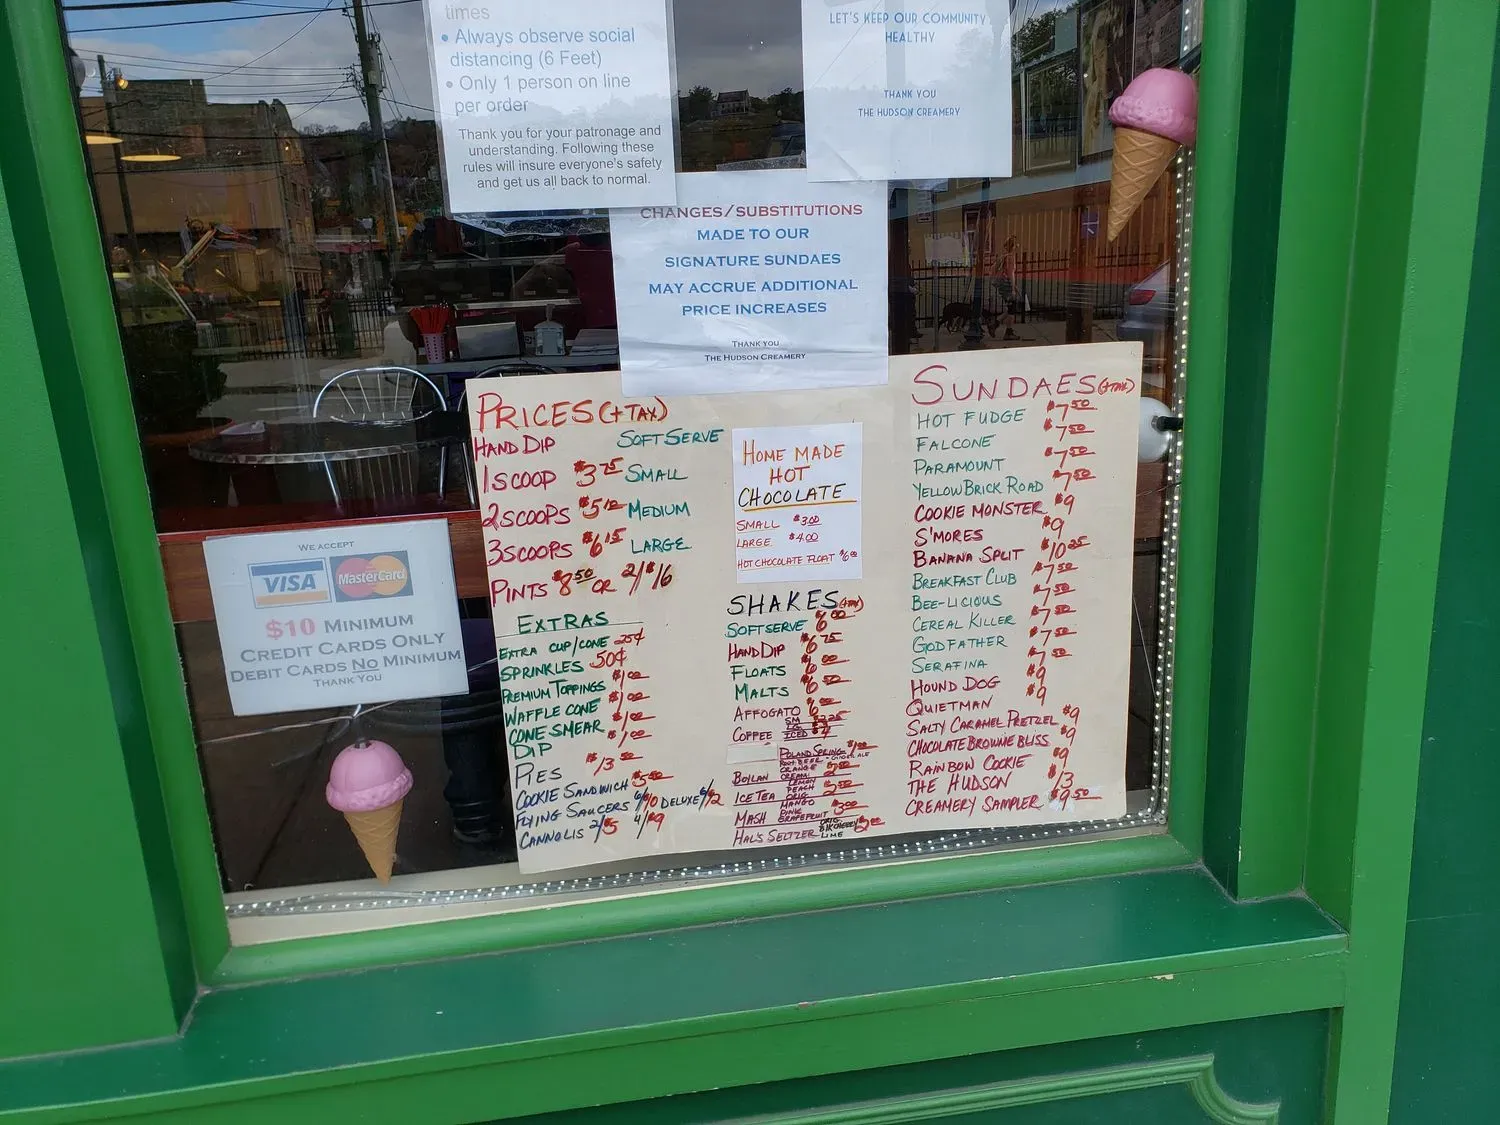 times
• Always observe social
distancing (6 Feet)
• Only 1 person on line
per order
Thank you for your patronage and
understanding. Following these
rules will insure everyone's safety
and get us all back to normal.
LET'S KEEP OUR COMMUNITY
HEALTHY
THANK YOU
THE HUDSON CREAMERY
CHANGES/SUBSTITUTIONS
MADE TO OUR
SIGNATURE SUNDAES
MAY ACCRUE ADDITIONAL
PRICE INCREASES
THANK YOU
THE HUDSON CREAMERY
WE ACCEPT
VISA MasterCard
$10 MINIMUM
CREDIT CARDS ONLY
DEBIT CARDS NO MINIMUM
THANK YOU
PRICES (+TAX)
HAND DIP SOFT SERVE
1 SCOOP $3.75 SMALL
2 SCOOPS MEDIUM
3 SCOOPS $6.15 LARGE
PINTS $8.50 OR 2/$16
EXTRAS
EXTRA CUP/CONE 25¢
SPRINKLES 50¢
PREMIUM TOPPINGS $1.00
WAFFLE CONE $1.00
CONE SMEAR $1.00
DIP
PIES $13.50
COOKIE SANDWICH $5.50
FLYING SAUCERS 6/$10 DELUXE 6/$12
CANNOLIS 2/$5 4/$9
HOME MADE
HOT
CHOCOLATE
SMALL $3.00
LARGE $4.00
HOT CHOCOLATE FLOAT $6.00
SHAKES (+TAX)
SOFT SERVE $6.00
HAND DIP $6.75
FLOATS $6.00
MALTS $6.50
AFFOGATO $6.00
COFFEE SM $2.25
LG
ICED $4
POLAND SPRING $1.00
BOYLAN ROOT BEER GINGER ALE
ORANGE
CREAM
ICE TEA LEMON
PEACH
ORIG
MASH MANGO
PINK
GRAPEFRUIT $3.00
HAL'S SELTZER ORIG
BLK CHERRY
LIME
SUNDAES (+TAX)
HOT FUDGE $7.50
FALCONE $7.50
PARAMOUNT $7.50
YELLOW BRICK ROAD $7.50
COOKIE MONSTER $9
S'MORES $9
BANANA SPLIT $10.25
BREAKFAST CLUB $7.50
BEE-LICIOUS $7.50
CEREAL KILLER $7.50
GODFATHER $7.50
SERAFINA $7.50
HOUND DOG $9
QUIETMAN $9
SALTY CARAMEL PRETZEL $9
CHOCOLATE BROWNIE BLISS $9
RAINBOW COOKIE $9
THE HUDSON $13
CREAMERY SAMPLER $9.50